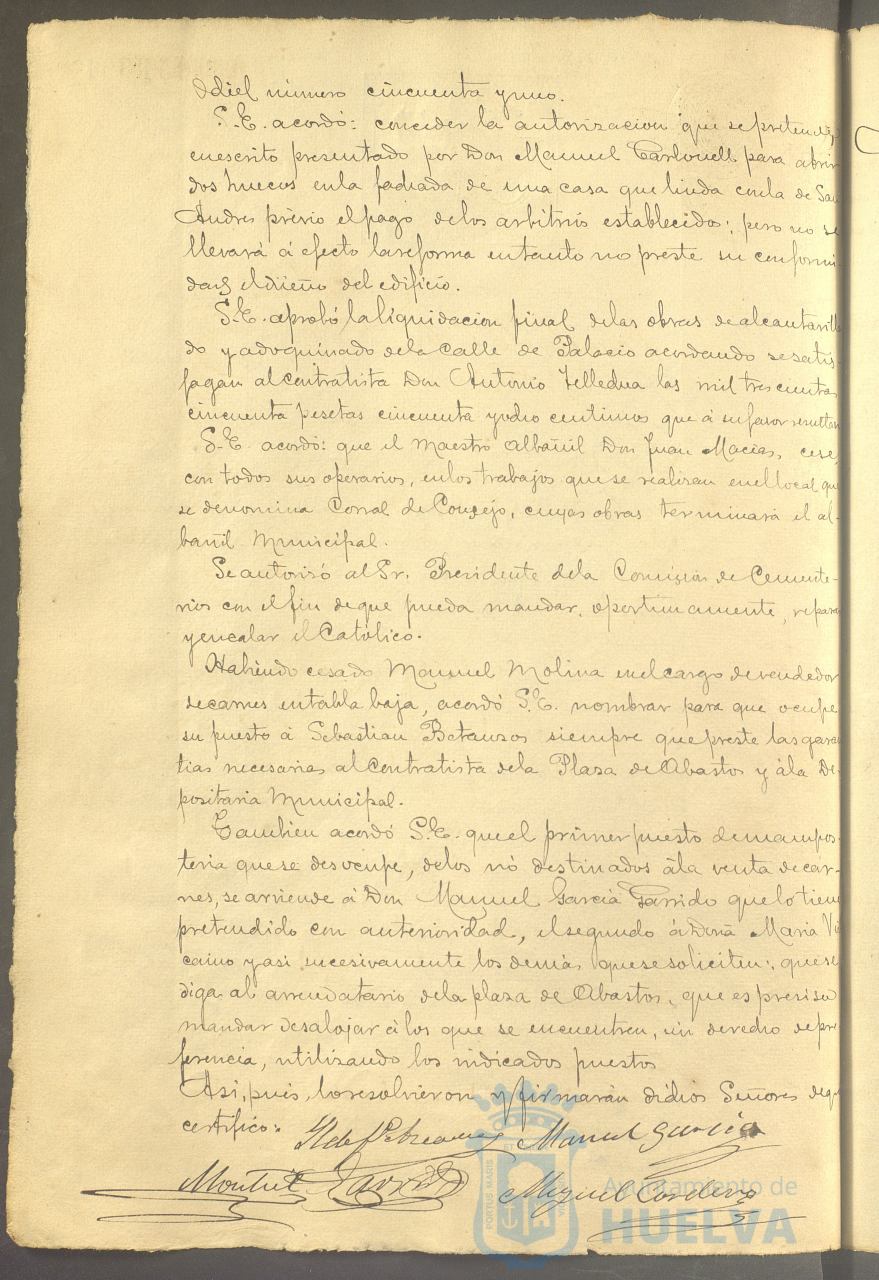 Odiel número cincuenta y uno.
S.E. acordó: conceder la autorizacion que se pretende,
en escrito presentado por Don Manuel Carbonell para abrir
dos huecos en la fachada de una casa que linda con la de San
Andres prévio el pago de los arbitrios establecidos; pero no se
llevará á efecto la reforma en tanto no preste su conformi
dad el dueño del edificio.
S.E. aprobó la liquidacion final de las obras de alcantarilla
do y adoquinado de la Calle de Palacio acordando se satis-
fagan al contratista Don Antonio las mil trescientas
cincuenta pesetas cincuenta y ocho centimos que á su favor resultan
S.E. acordó: que el Maestro albañil Don Juan Macías, cese
con todos sus operarios, en los trabajos que se realizan en el local que
se denomina Corral de Concejo, cuyas obras terminará el al-
bañil Municipal.
Se autorisó al Sr. Presidente de la Comision de Cemente-
rios con el fin de que pueda mandar, oportunamente, reparar
y encalar el Católico.
Habiendo cesado Manuel Molina en el cargo de vendedor
de carnes en tabla baja, acordó S.E. nombrar para que ocupe
su puesto á Sebastian Betanzos siempre que preste las garan
tias necesarias al Contratista de la Plaza de Abastos y á la De-
positaria Municipal.
Tambien acordó S.E. que el primer puesto de mampos-
teria que se desocupe, de los nó destinados á la venta de car-
nes, se arriende á Don Manuel García Garrido que lo tiene
pretendido con anterioridad, el segundo á Doña Maria Viz
caino y asi sucesivamente los demás que se soliciten; que se
diga al arrendatario de la plaza de Abastos, que es preciso
mandar desalojar á los que se encuentren, sin derecho de pre
ferencia, utilizando los indicados puestos
Asi, pues, lo resolvieron y firmarán dichos Señores de que
certifico:
Manuel García
Garrido
Miguel Cordero
Ayuntamiento de
HUELVA
PORTUS MARIS